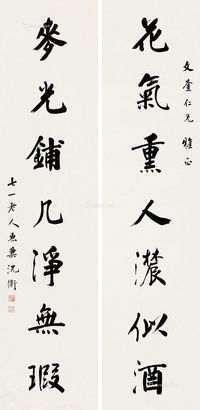 文奎仁兄 雅正
花氣熏人濃似酒
麥光鋪几淨無瑕
七一老人兼巢沈衛